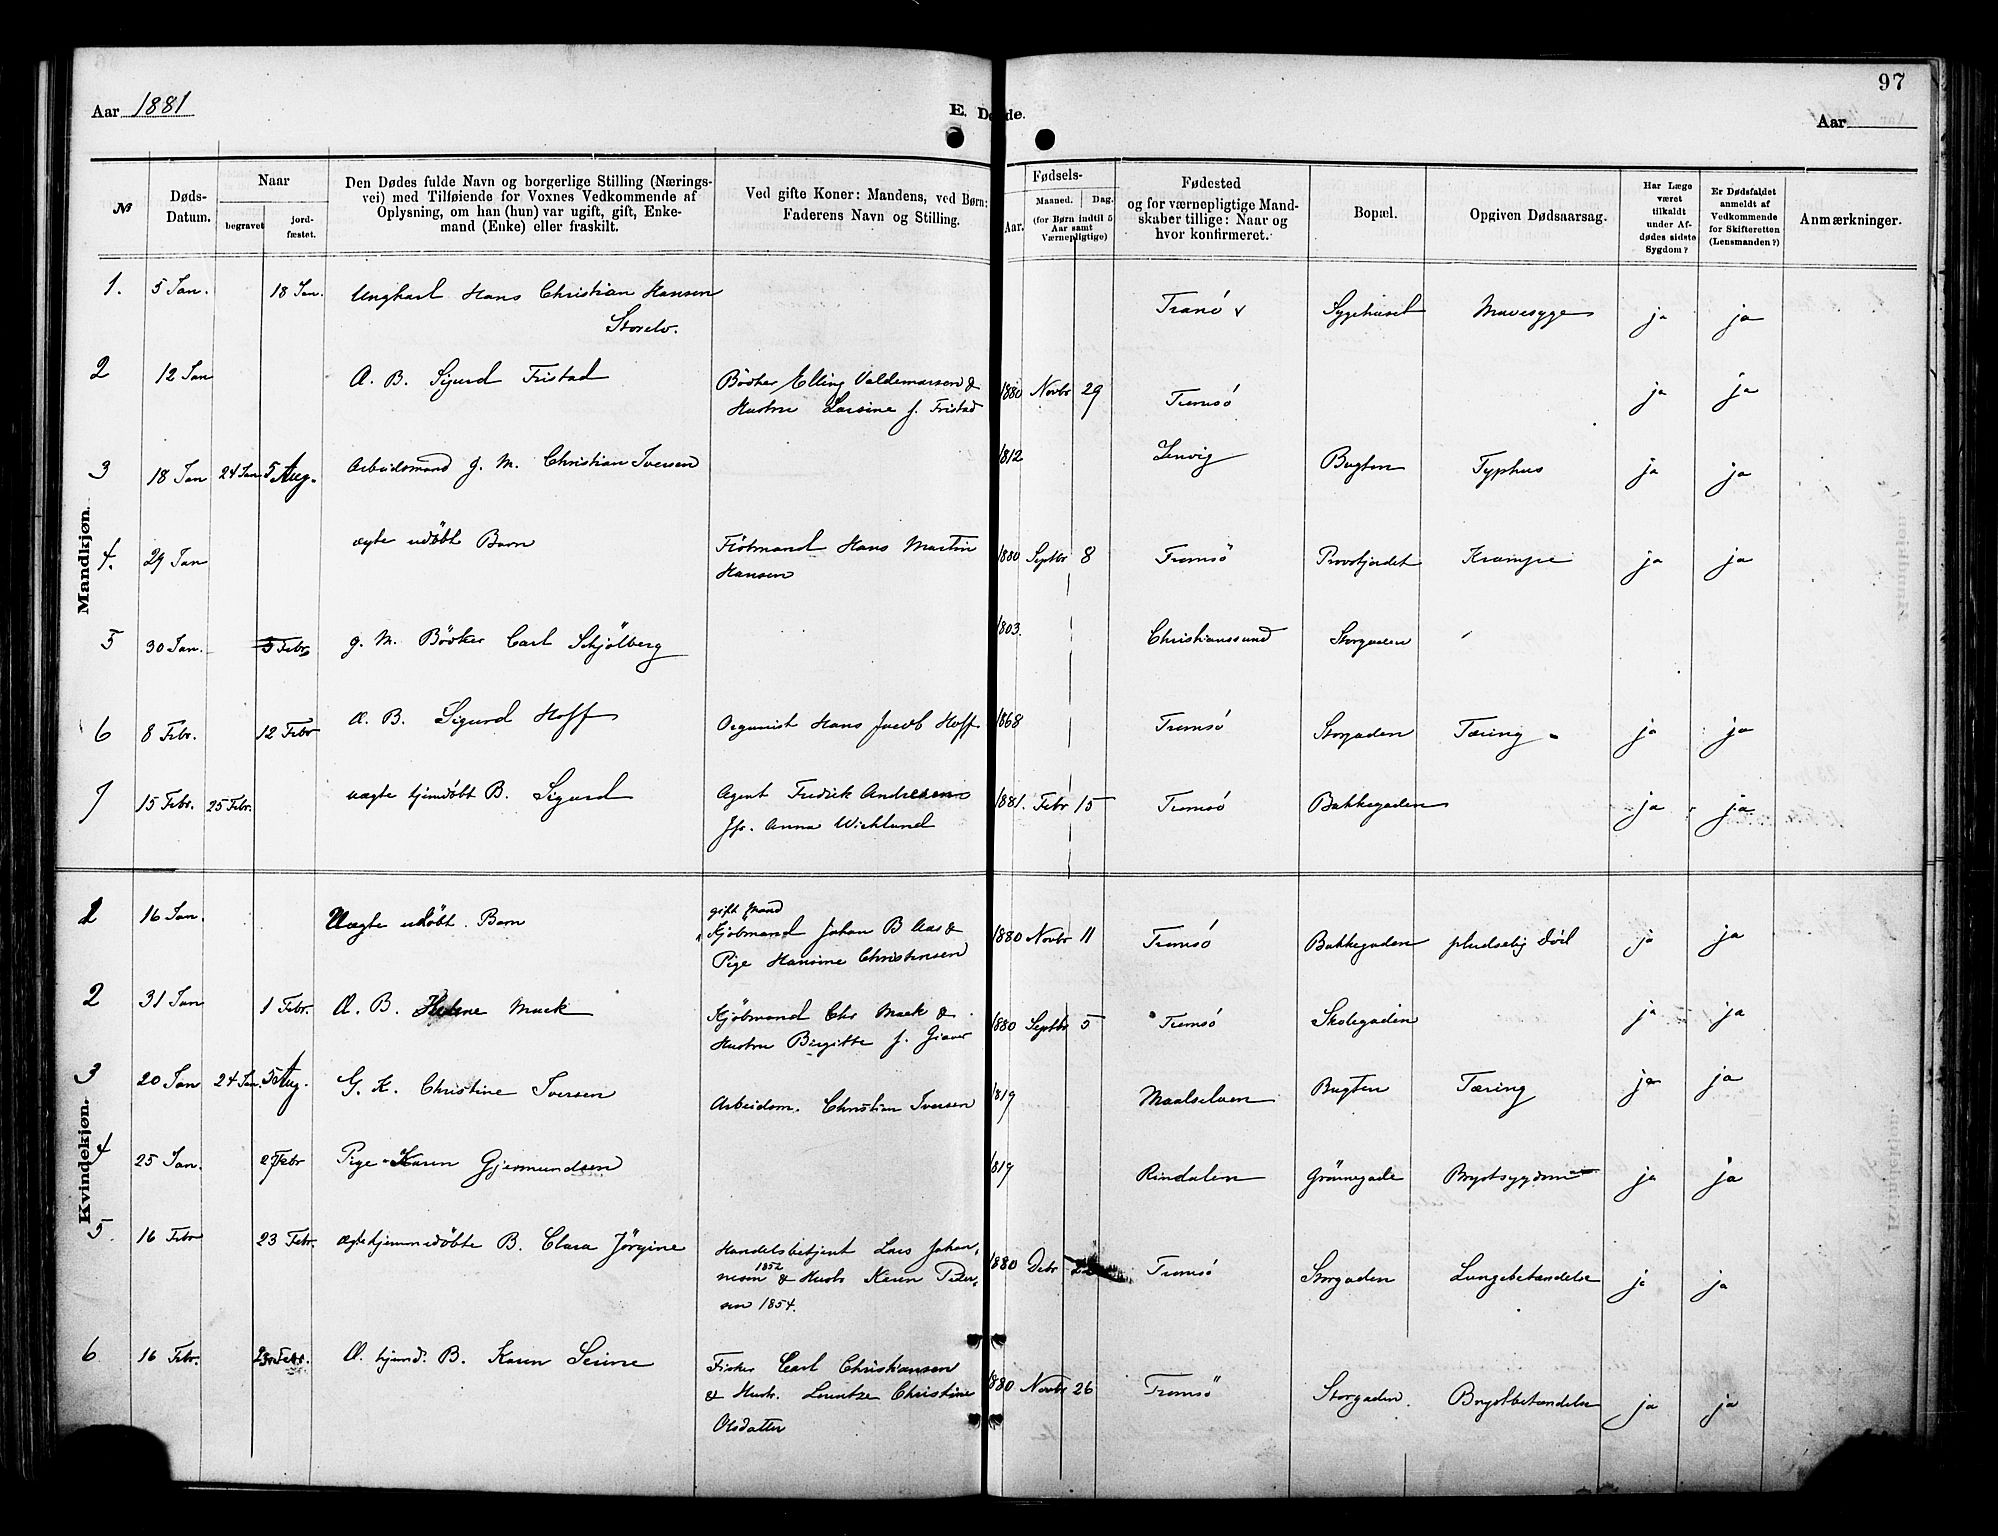 97
Aar 1881
E. Døde.
Aar
№
Døds-Datum.
Naar
begravet
jord-fæstet.
Den Dødes fulde Navn og borgerlige Stilling (Nærings-
vei) med Tilføiende for Voxnes Vedkommende af
Oplysning, om han (hun) var ugift, gift, Enke-
mand (Enke) eller fraskilt.
Ved gifte Koner: Mandens, ved Børn:
Faderens Navn og Stilling.
Fødsels-
Aar.
Maaned. Dag.
(for Børn indtil 5
Aar samt
Værnepligtige)
Fødested
og for værnepligtige Mand-
skaber tillige: Naar og
hvor konfirmeret.
Bopæl.
Opgiven Dødsaarsag.
Har Læge
været
tilkaldt
under Af-
dødes sidste
Sygdom?
Er Dødsfaldet
anmeldt af
Vedkommende
for Skifteretten
(Lensmanden?)
Anmærkninger.
Mandkjøn.
1. 5 Jan. 18 Jan. Ungkarl Hans Christian Hansen Tranö Sygehuset Mavesyge ja ja
Storelv.
2 12 Jan Æ. B. Sigurd Fristad Bödker Elling Valdemarsen & 1880 Novbr 29 Tromsö ja ja
Hustru Larsine f. Fristad
3 18 Jan 24 Jan 5 Aug. Arbeidsmand g. M. Christian Iversen 1812 Lenvig Bugten Typhus ja ja
4. 29 Jan ægte udöbt Barn Flötmand Hans Martin 1880 Septbr 8 Tromsö Provstjordet Krampe ja ja
Hansen
5 30 Jan. 5 Febr g. M. Bödker Carl Schjölberg 1803. Christianssund Storgaden
6 8 Febr. 12 Febr Æ. B. Sigurd Hoff Organist Hans Jacob Hoff 1868 Tromsö Storgaden Tæring ja ja
7 15 Febr. 25 Febr. uægte hjemdöbt B. Sigurd Agent Fredrik Andresen 1881. Febr 15 Tromsö Bakkegaden ja ja
Jfr. Anna Wichlund
Kvindekjøn.
1 16 Jan. Uægte udöbt. Barn gift Mand
Kjöbmand Johan B Aas & 1880 Novbr 11 Tromsö Bakkegaden pludselig Död ja ja
Pige Hansine Christensen
2 31 Jan 1 Febr. Æ. B. Helene Mack Kjöbmand Chr Mack & 1880 Septbr 5 Tromsö Skolegaden ja ja
Hustru Birgitte f. Giæver
3 20 Jan 24 Jan. 5 Aug. G. K. Christine Iversen Arbeidsm. Christian Iversen 1819 Maalselven Bugten Tæring ja ja
4 25 Jan. 2 Febr Pige Karen Gjermundsen 1819 Rindalen Grönnegade Brystsygdom ja ja
5. 16 Febr 23 Febr. ægte hjemmedöbte B. Clara Jörgine Handelsbetjent Lars Johan- 1880 Debr Tromsö Storgaden Lungebetændelse ja ja
nesen 1852 & Hustr Karen Peder-
sen 1854.
6 16 Febr. 23 Febr. Æ. hjemd. B. Karen Fisker Carl Christiansen 1880 Novbr 26 Tromsö Storgaden. Brystbetændelse ja ja
& Hustr. Christine
Olsdatter